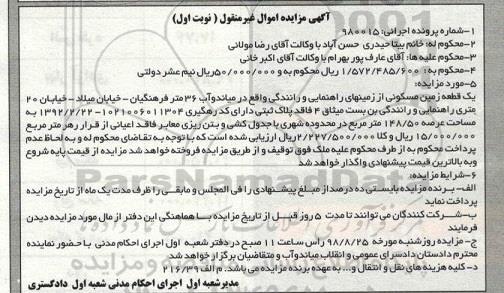 آگهی مزایده اموال غیرمنقول ( نوبت اول )
۱-شماره پرونده اجرائی: ۹۸۰۰۱۵
۲-محکوم له: خانم بیتا حیدری حسن آباد با وکالت آقای رضا مولائی
۳-محکوم علیه ها: آقای عارف پور بهرام با وکالت آقای اکبر خانی
۴-محکوم به: ۱/۵۷۲/۴۸۵/۶۰۰ ریال محکوم به و ۵۰/۰۰۰/۰۰۰ریال نیم عشر دولتی
۵-مورد مزایده:
یک قطعه زمین مسکونی از زمینهای راهنمایی و رانندگی واقع در میاندوآب ۳۶ متر فرهنگیان - خیابان میلاد - خیابان ۲۰
متری راهنمایی و رانندگی بن بست میثاق ۴ فاقد پلاک ثبتی دارای کد رهگیری ۱۰۲۱۰۰۶۰۱۱۳۰۴ - ۱۳۹۲/۲/۲۲ به
مساحت عرصه ۱۴۸/۵۰ متر مربع در محدوده شهری با جدول کشی و بتن ریزی معابر فاقد اعیانی از قرار هر متر مربع
۱۵/۰۰۰/۰۰۰ ریال و کلا ۲/۲۲۷/۵۰۰/۰۰۰ریال ارزیابی شده است که با توجه به تقاضای محکوم له و به لحاظ عدم
پرداخت محکوم به از طرف محکوم علیه ملک فوق توقیف و از طریق مزایده فروخته خواهد شد مزایده از قیمت پایه شروع
و به بالاترین قیمت پیشنهادی واگذار خواهد شد
۶-شرایط مزایده:
الف- برنده مزایده بایستی ده درصد از مبلغ پیشنهادی را فی المجلس و مابقی را ظرف مدت یک ماه از تاریخ مزایده
پرداخت نماید
ب-شرکت کنندگان می توانند تا مدت ۵ روز قبل از تاریخ مزایده با هماهنگی این دفتر از مال مورد مزایده دیدن
فرمایند
ج- مزایده روز شنبه مورخه ۹۸/۸/۲۵ راس ساعت ۱۱ صبح در دفتر شعبه اول اجرای احکام مدنی با حضور نماینده
محترم دادستان دادسرای عمومی و انقلاب میاندوآب و متقاضیان برگزار خواهد شد
د-کلیه هزینه های نقل و انتقال و... به عهده برنده مزایده می باشد. م الف ۲۱۶/۳۹
مدیر شعبه اول اجرای احکام مدنی شعبه اول دادگستری
ParsNamadData